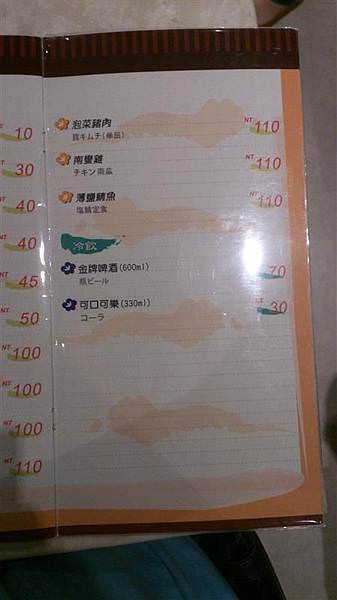 10
30
40
40
45
50
NT 100
NT 100
NT 100
NT 110
泡菜豬肉 NT 110
豚キムチ(単品)
南蠻雞 NT 110
チキン南蛮
薄鹽鯖魚 NT 110
塩鯖定食
冷飲
金牌啤酒(600ml) 70
瓶ビール
可口可樂(330ml) NT 30
コーラ